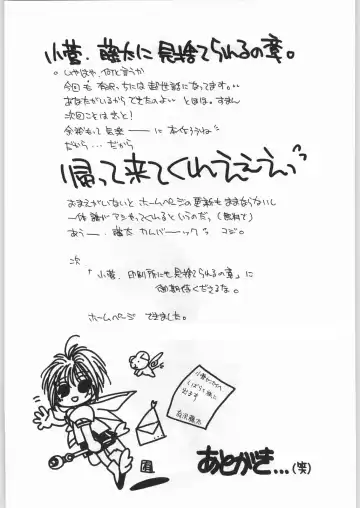 小菅、藤太に見捨てられるの章。
。いやはや、何と言うか
今回も有沢っちには お世話になってます。。
あなたがいるから できたのよ… とほほ。すまん
次回ことはきっと!
余裕もって 見楽――に 本作ろうね
だから… だから
帰って来てくれえええぇっ
おまえがいないと ホームページの更新も ままならないし
一体 誰が アシやってくれると いうのだ。(無料で)
あぅ――. 藤太 カムバ――ック。 コジ。
次
「小菅、印刷所にも見捨てられるの章」に
ご期待くださるな。
ホームページ できました。
小菅サンから
しばらく旅に
出ます
有沢藤太
あとがき...(笑)